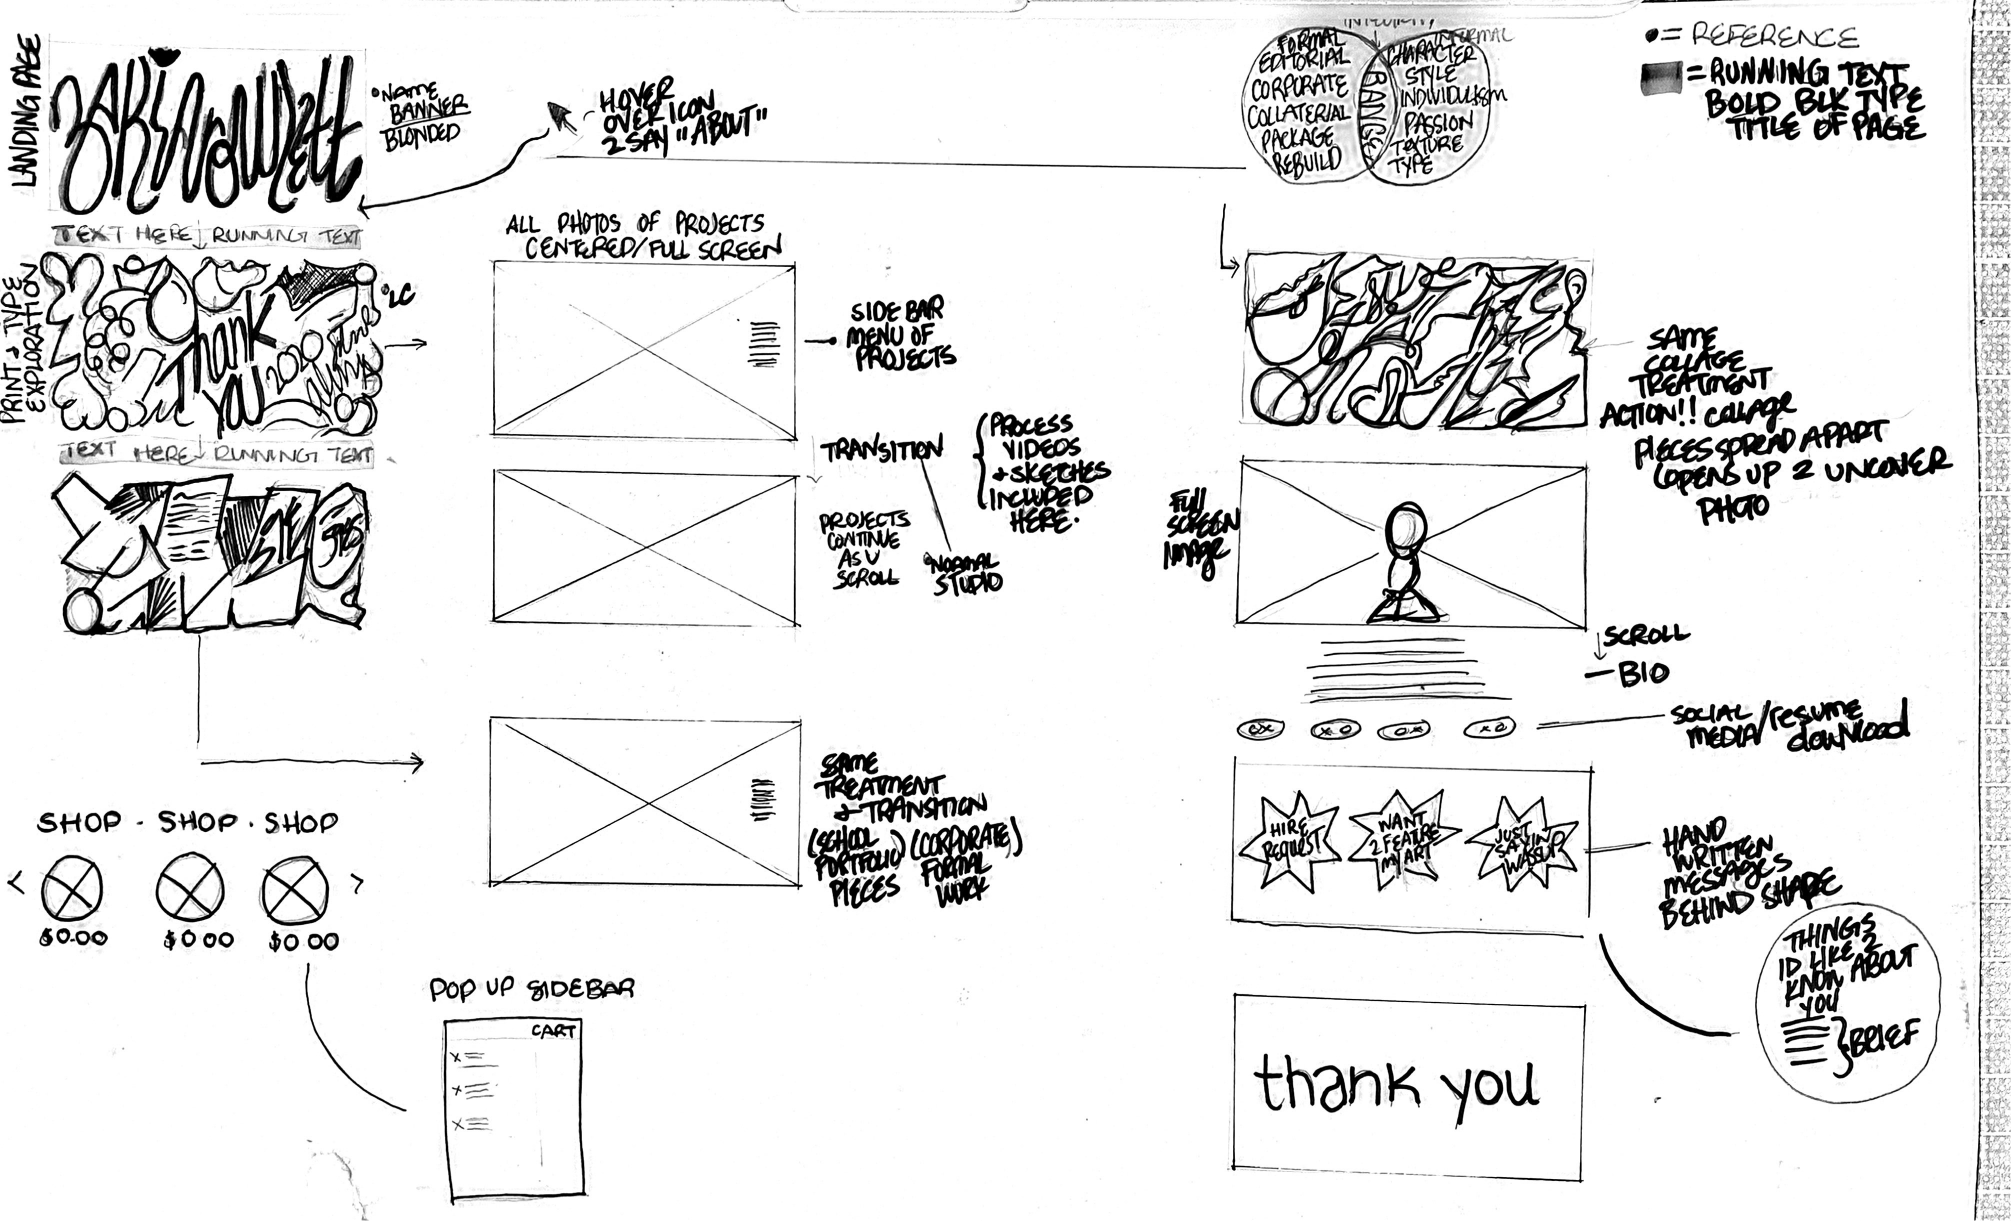 LANDING PAGE
ZARiA
•NAME
BANNER
BLONDED
HOVER
OVER ICON
2 SAY "ABOUT"
TEXT HERE RUNNING TEXT
PRINT & TYPE
EXPLORATION
Thank
YOU
•LC
TEXT HERE RUNNING TEXT
SHOP · SHOP · SHOP
< >
$0.00 $0 00 $0 00
POP UP SIDEBAR
CART
x
x
x
ALL PHOTOS OF PROJECTS
CENTERED/FULL SCREEN
SIDE BAR
MENU OF
PROJECTS
TRANSITION
PROCESS
VIDEOS
+ SKETCHES
INCLUDED
HERE.
PROJECTS
CONTINUE
AS U
SCROLL
•NORMAL
STUDIO
SAME
TREATMENT
& TRANSITION
(SCHOOL
PORTFOLIO)
PIECES
(CORPORATE)
FORMAL
WORK
FORMAL
EDITORIAL
CORPORATE
COLLATERIAL
PACKAGE
REBUILD
RANGE
INFORMAL
CHARACTER
STYLE
INDIVIDULISM
PASSION
TEXTURE
TYPE
• = REFERENCE
= RUNNING TEXT
BOLD BLK TYPE
TITLE OF PAGE
SAME
COLLAGE
TREATMENT
ACTION!! COLLAGE
PIECES SPREAD APART
(OPENS UP 2 UNCOVER
PHOTO
FULL
SCREEN
IMAGE
SCROLL
— BIO
SOCIAL
MEDIA/resume
download
HIRE
REQUEST
WANT
2 FEATURE
MY ART
JUST
SAYIN
WASSUP
HAND
WRITTEN
MESSAGES
BEHIND SHAPE
THINGS
ID LIKE 2
KNOW ABOUT
YOU
BRIEF
thank you